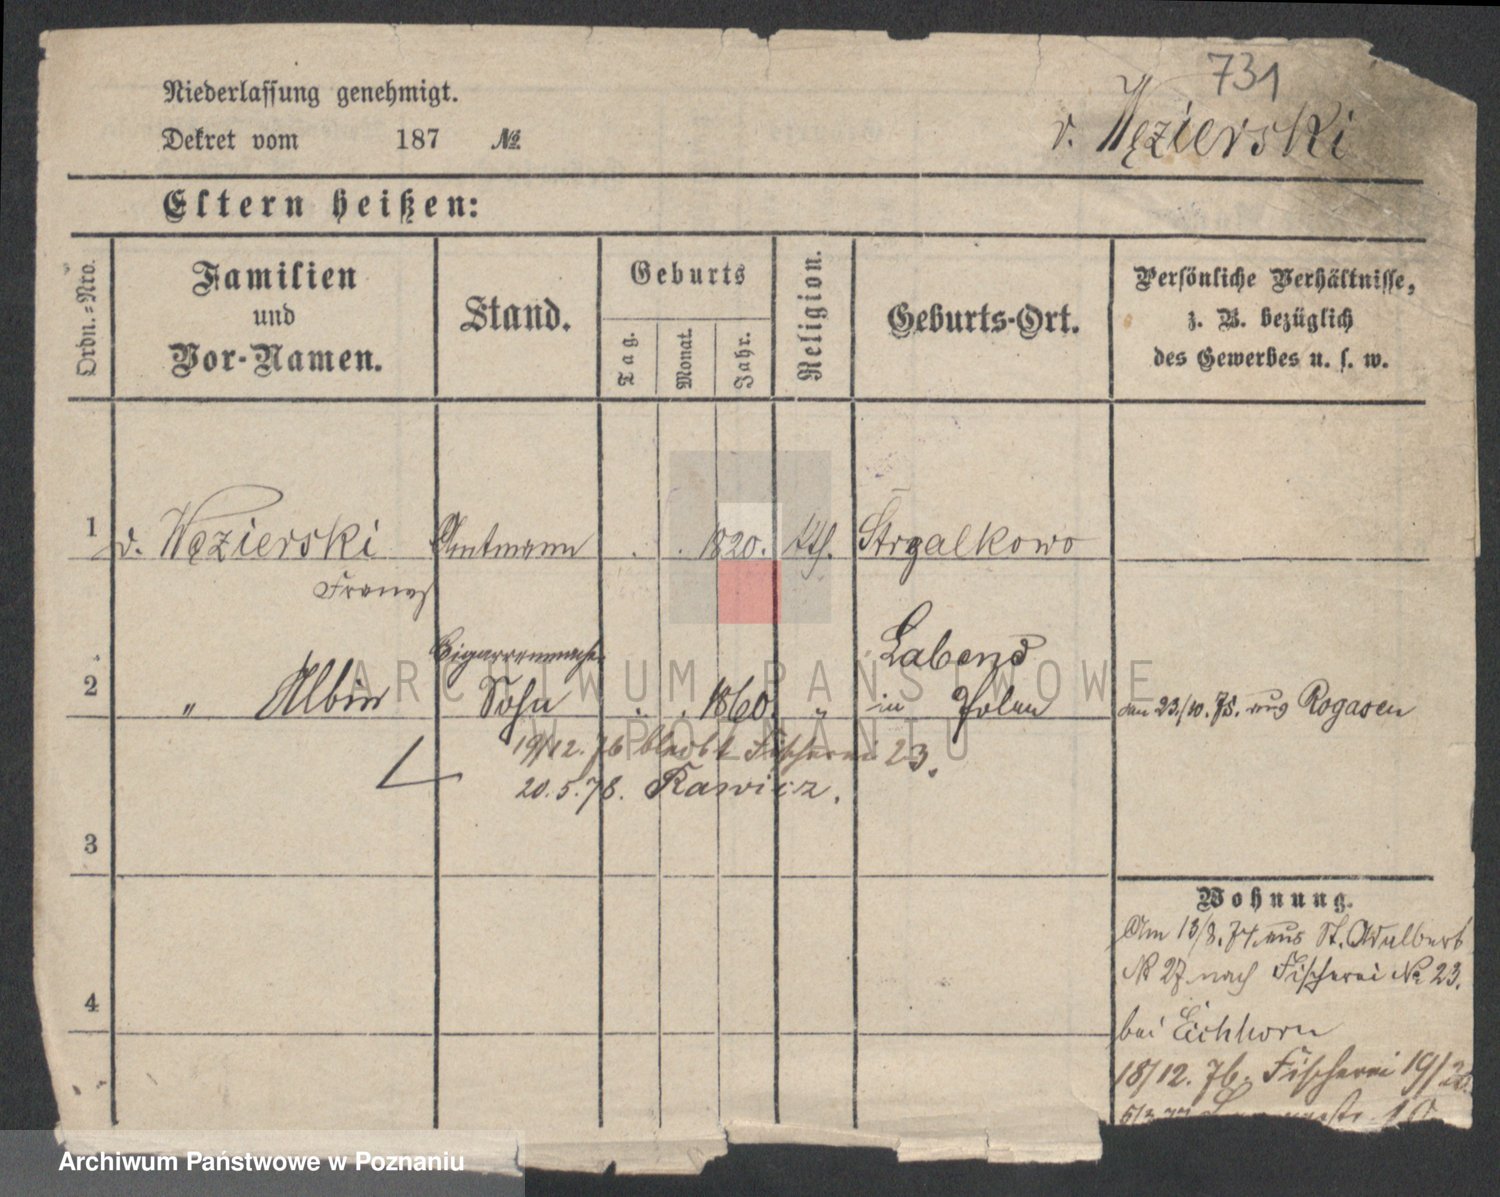 731
Niederlassung genehmigt.
v. Węzierski
Dekret vom 187 №
Eltern heißen:
Ordn.=Nro.
Familien
und
Vor-Namen.
Stand.
Geburts
Tag.
Monat.
Jahr.
Religion.
Geburts-Ort.
Persönliche Verhältnisse,
z. B. bezüglich
des Gewerbes u. s. w.
1 v. Węzierski Amtmann . . 1820. kth. Strzalkowo
Franz
Cigarrenmacher
Labend
2 " Albin Sohn . . 1860. " in Polen den 23./10. 75. aus Rogasen
19/12. 76 bleibt Fischerei 23.
20.5.78. Rawicz.
3
Wohnung.
Am 13/3. 74. aus St. Adalbert
№ 27 nach Fischerei № 23.
4
bei Eichhorn
18/12. 76. Fischerei 19/20.
ARCHIWUM PAŃSTWOWE
W POZNANIU
Archiwum Państwowe w Poznaniu